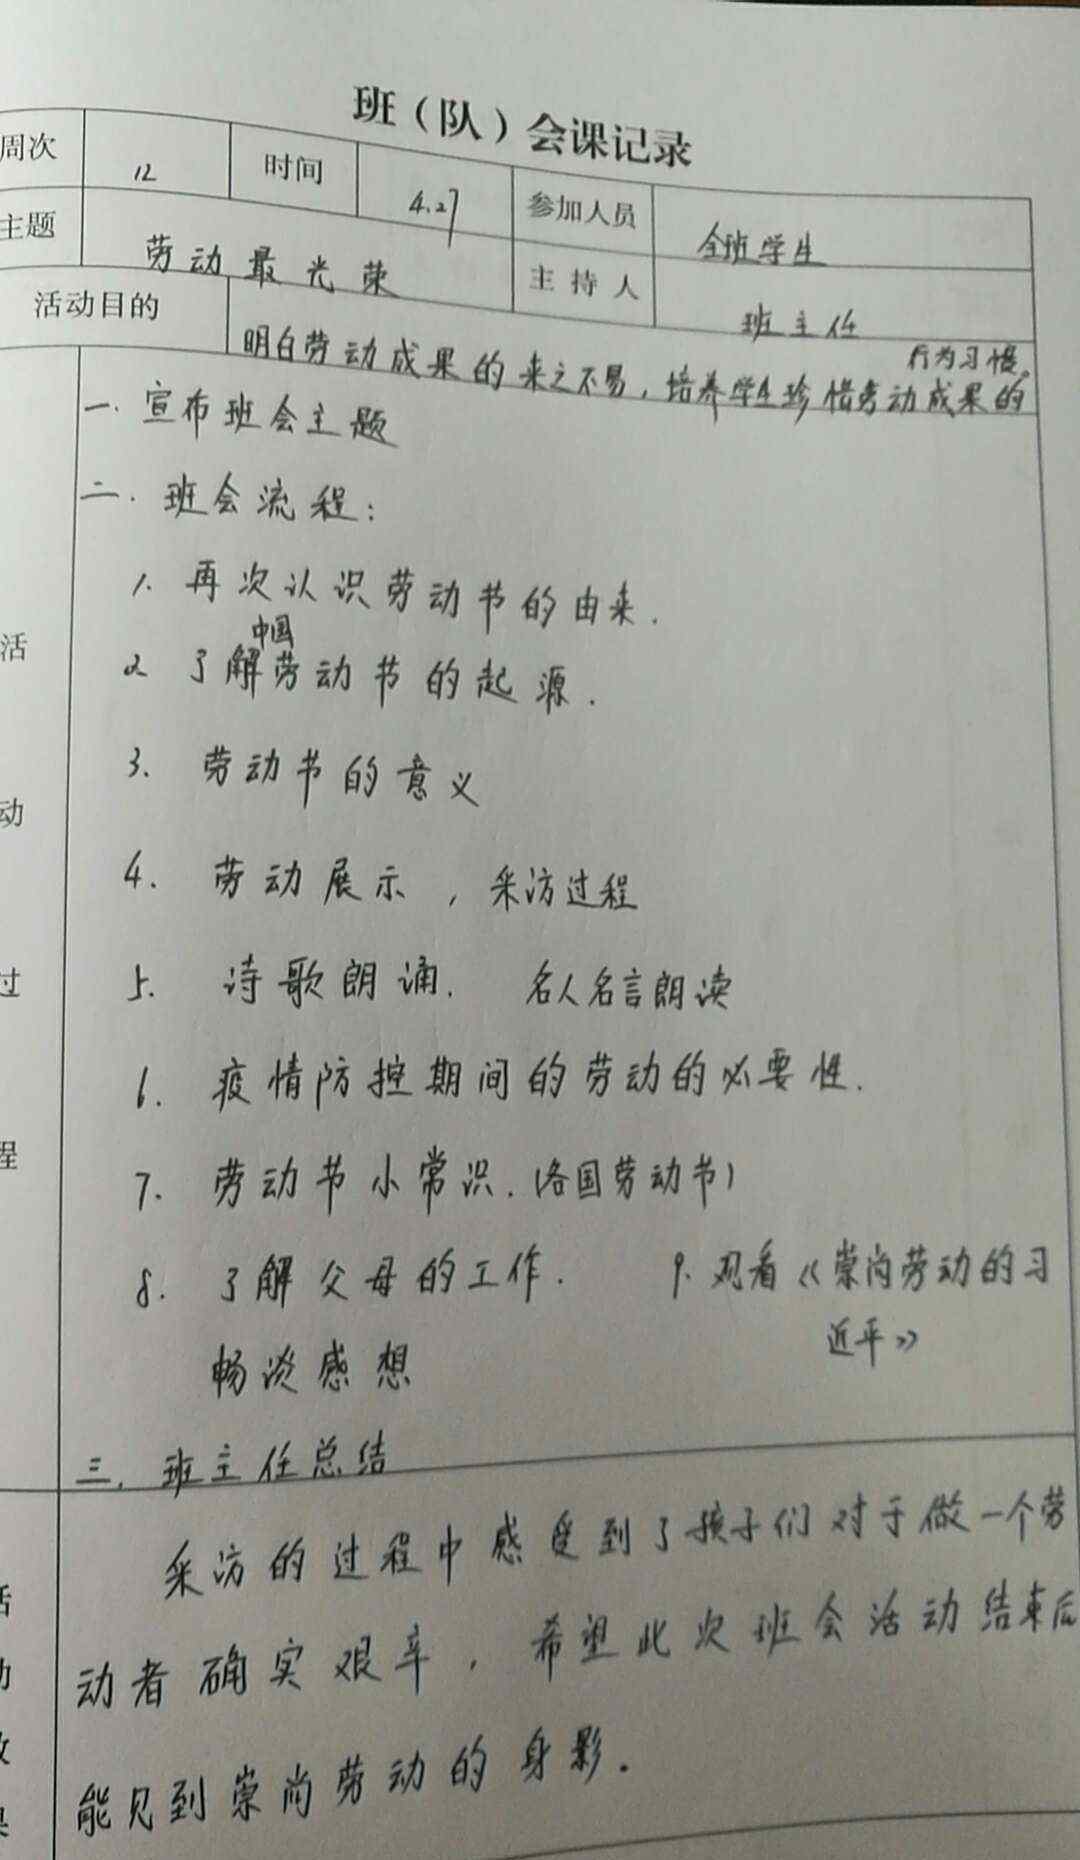 班（队）会课记录
周次 12 时间 4.27 参加人员 全班学生
主题 劳动最光荣 主持人 班主任
活动目的 明白劳动成果的来之不易，培养学生珍惜劳动成果的
行为习惯。
一.宣布班会主题
二.班会流程：
1.再次认识劳动节的由来.
2 了解中国劳动节的起源.
3.劳动节的意义
4.劳动展示，采访过程
5.诗歌朗诵.名人名言朗读
6.疫情防控期间的劳动的必要性.
7.劳动节小常识.(各国劳动节)
8.了解父母的工作. 9.观看《崇尚劳动的习
近平》
畅谈感想
三.班主任总结
活
动
过
程
采访的过程中感受到了孩子们对于做一个劳
动者确实艰辛，希望此次班会活动结束后
能见到崇尚劳动的身影。
活
动
效
果